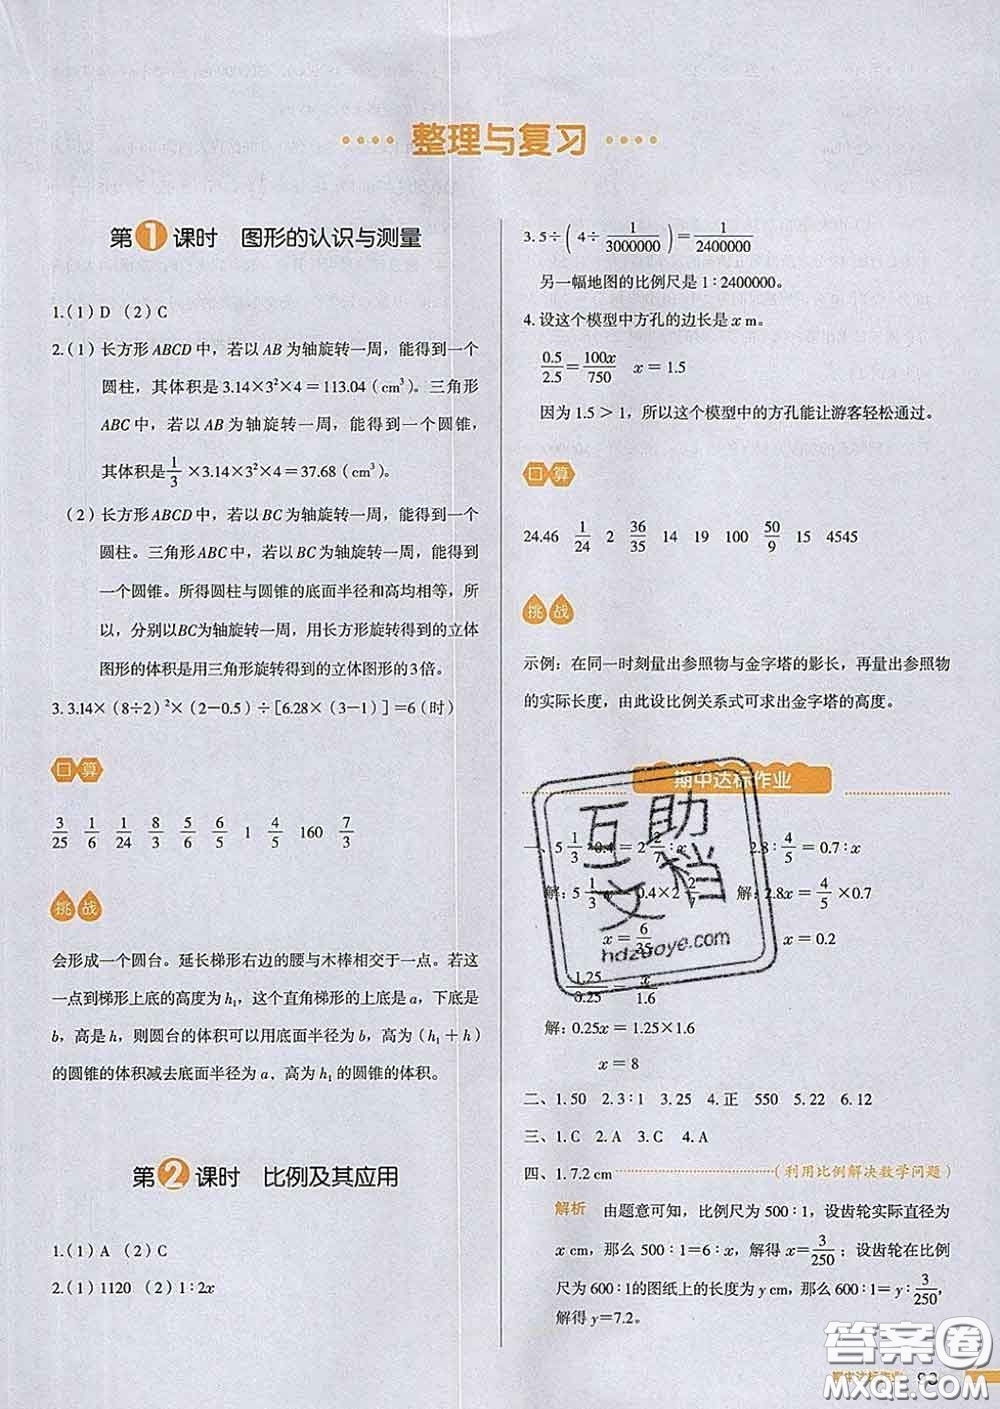 整理与复习
第1课时 图形的认识与测量
1.(1) D (2) C
2.(1) 长方形ABCD中，若以AB为轴旋转一周，能得到一个
圆柱，其体积是3.14×3²×4＝113.04(cm³)。三角形
ABC中，若以AB为轴旋转一周，能得到一个圆锥，
其体积是1/3×3.14×3²×4＝37.68(cm³)。
(2) 长方形ABCD中，若以BC为轴旋转一周，能得到一个
圆柱。三角形ABC中，若以BC为轴旋转一周，能得到
一个圆锥。所得圆柱与圆锥的底面半径和高均相等，所
以，分别以BC为轴旋转一周，用长方形旋转得到的立体
图形的体积是用三角形旋转得到的立体图形的3倍。
3. 3.14×(8÷2)²×(2－0.5)÷[6.28×(3－1)]＝6(时)
口算
3/25 1/6 1/24 8/3 5/6 6/5 1 4/5 160 7/3
挑战
会形成一个圆台。延长梯形右边的腰与木棒相交于一点。若这
一点到梯形上底的高度为h₁，这个直角梯形的上底是a，下底是
b，高是h，则圆台的体积可以用底面半径为b，高为(h₁＋h)
的圆锥的体积减去底面半径为a、高为h₁的圆锥的体积。
第2课时 比例及其应用
1.(1) A (2) C
2.(1) 1120 (2) 1∶2x
3. 5÷(4÷1/3000000)＝1/2400000
另一幅地图的比例尺是1∶2400000。
4. 设这个模型中方孔的边长是x m。
0.5/2.5＝100x/750 x＝1.5
因为1.5＞1，所以这个模型中的方孔能让游客轻松通过。
口算
24.46 1/24 2 36/35 14 19 100 50/9 15 4545
挑战
示例：在同一时刻量出参照物与金字塔的影长，再量出参照物
的实际长度，由此设比例关系式可求出金字塔的高度。
期中达标作业
一、5 1/3∶0.4＝2 2/7∶x 2.8∶4/5＝0.7∶x
解：5 1/3 x＝0.4×2 2/7 解：2.8x＝4/5×0.7
x＝6/35 x＝0.2
1.25/0.25＝x/1.6
解：0.25x＝1.25×1.6
x＝8
二、1.50 2.3∶1 3.25 4.正 550 5.22 6.12
三、1.C 2.A 3.C 4.A
四、1.7.2 cm (利用比例解决数学问题)
解析 由题意可知，比例尺为500∶1，设齿轮实际直径为
x cm，那么500∶1＝6∶x，解得x＝3/250；设齿轮在比例
尺为600∶1的图纸上的长度为y cm，那么600∶1＝y∶3/250，
解得y＝7.2。
互助
文档
hdzuoye.com
答案圈
MXQE.COM
期中达标作业